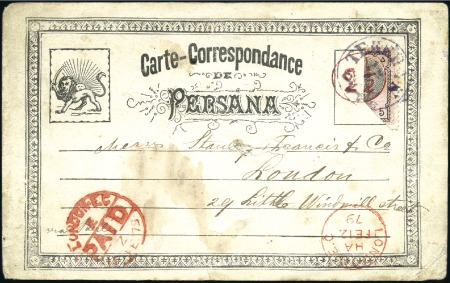 Carte-Correspondance
DE
PERSANA
Messrs Stanley Francis & Co
London
29 Little Windmill Street
via
TEHERAN
LONDON E.C.
PAID
LONDON
HA
FE12
79